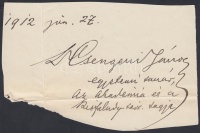 1912 jún. 27.
Dr Csengeri János
egyetemi tanár,
az Akadémia és a
Kisfaludy társ. tagja